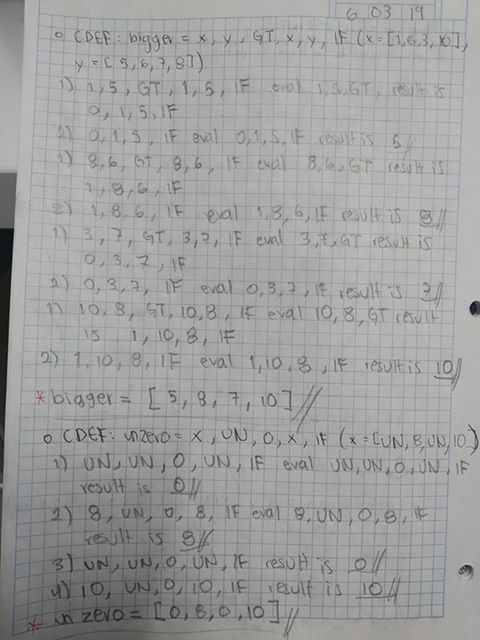 6 03 19
o CDEF: bigger = x, y, GT, x, y, IF (x = [1,8,3,10],
y = [5,6,7,8])
1) 1, 5, GT, 1, 5, IF eval 1,5,GT, result is
0, 1, 5, IF
2) 0, 1, 5, IF eval 0,1,5,IF result is 5//
1) 8, 6, GT, 8, 6, IF eval 8,6,GT result is
1, 8, 6, IF
2) 1, 8, 6, IF eval 1,8,6,IF result is 8//
1) 3, 7, GT, 3,7, IF eval 3,7,GT result is
0, 3, 7, IF
2) 0, 3, 7, IF eval 0,3,7, IF result is 7//
1) 10, 8, GT, 10, 8, IF eval 10, 8, GT result
is 1, 10, 8, IF
2) 1, 10, 8, IF eval 1,10,8, IF result is 10//
* bigger = [5, 8, 7, 10]//
o CDEF: unzero = x, UN, 0, x, IF (x = [UN, 8, UN, 10)
1) UN, UN, 0, UN, IF eval UN, UN, 0, UN, IF
result is 0//
2) 8, UN, 0, 8, IF eval 8, UN, 0, 8, IF
result is 8//
3) UN, UN, 0, UN, IF result is 0//
4) 10, UN, 0, 10, IF result is 10//
* un zero = [0, 8, 0, 10]//